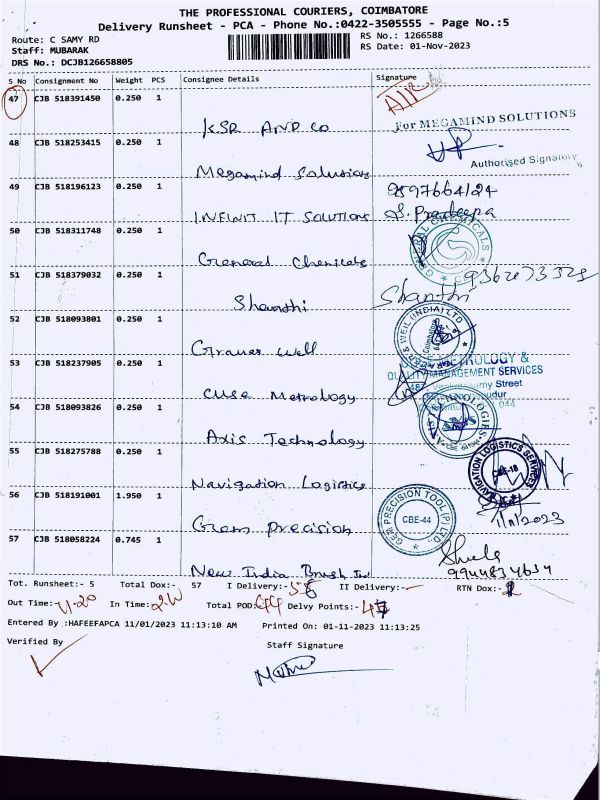 THE PROFESSIONAL COURIERS, COIMBATORE
Delivery Runsheet - PCA - Phone No.:0422-3505555 - Page No.:5
Route: C SAMY RD
RS No.: 1266588
Staff: MUBARAK
RS Date: 01-Nov-2023
DRS No.: DCJB126658805
S No Consignment No Weight PCS Consignee Details Signature
47 CJB 518391450 0.250 1
KSR AND Co
For MEGAMIND SOLUTIONS
48 CJB 518253415 0.250 1
Authorised Signatory
Megamind Solutions
49 CJB 518196123 0.250 1 9597664124
INFINIT IT SOLUTIONS S. Pradeepa
50 CJB 518311748 0.250 1
General Chemicals
GENERAL CHEMICALS
51 CJB 518379032 0.250 1
Shanthi Shanthi
52 CJB 518093801 0.250 1
Grauer Well
& WEIL (INDIA) LTD
53 CJB 518237905 0.250 1
METROLOGY &
QUALITY MANAGEMENT SERVICES
Street
CUSE Metrology
54 CJB 518093826 0.250 1
Axis Technology
55 CJB 518275788 0.250 1
Navigation Logistics
NAVIGATION LOGISTICS SERVICES
CBE-18
56 CJB 518191001 1.950 1
Gem Precision
GEM PRECISION TOOL (P) LTD.,
CBE-44
1/11/2023
57 CJB 518058224 0.745 1
New India Brush
Tot. Runsheet:- 5 Total Dox:- 57 I Delivery:- II Delivery:- RTN Dox:-
Out Time:-11-20 In Time: Total POD: Delvy Points:-
Entered By :HAFEEFAPCA 11/01/2023 11:13:10 AM Printed On: 01-11-2023 11:13:25
Verified By Staff Signature